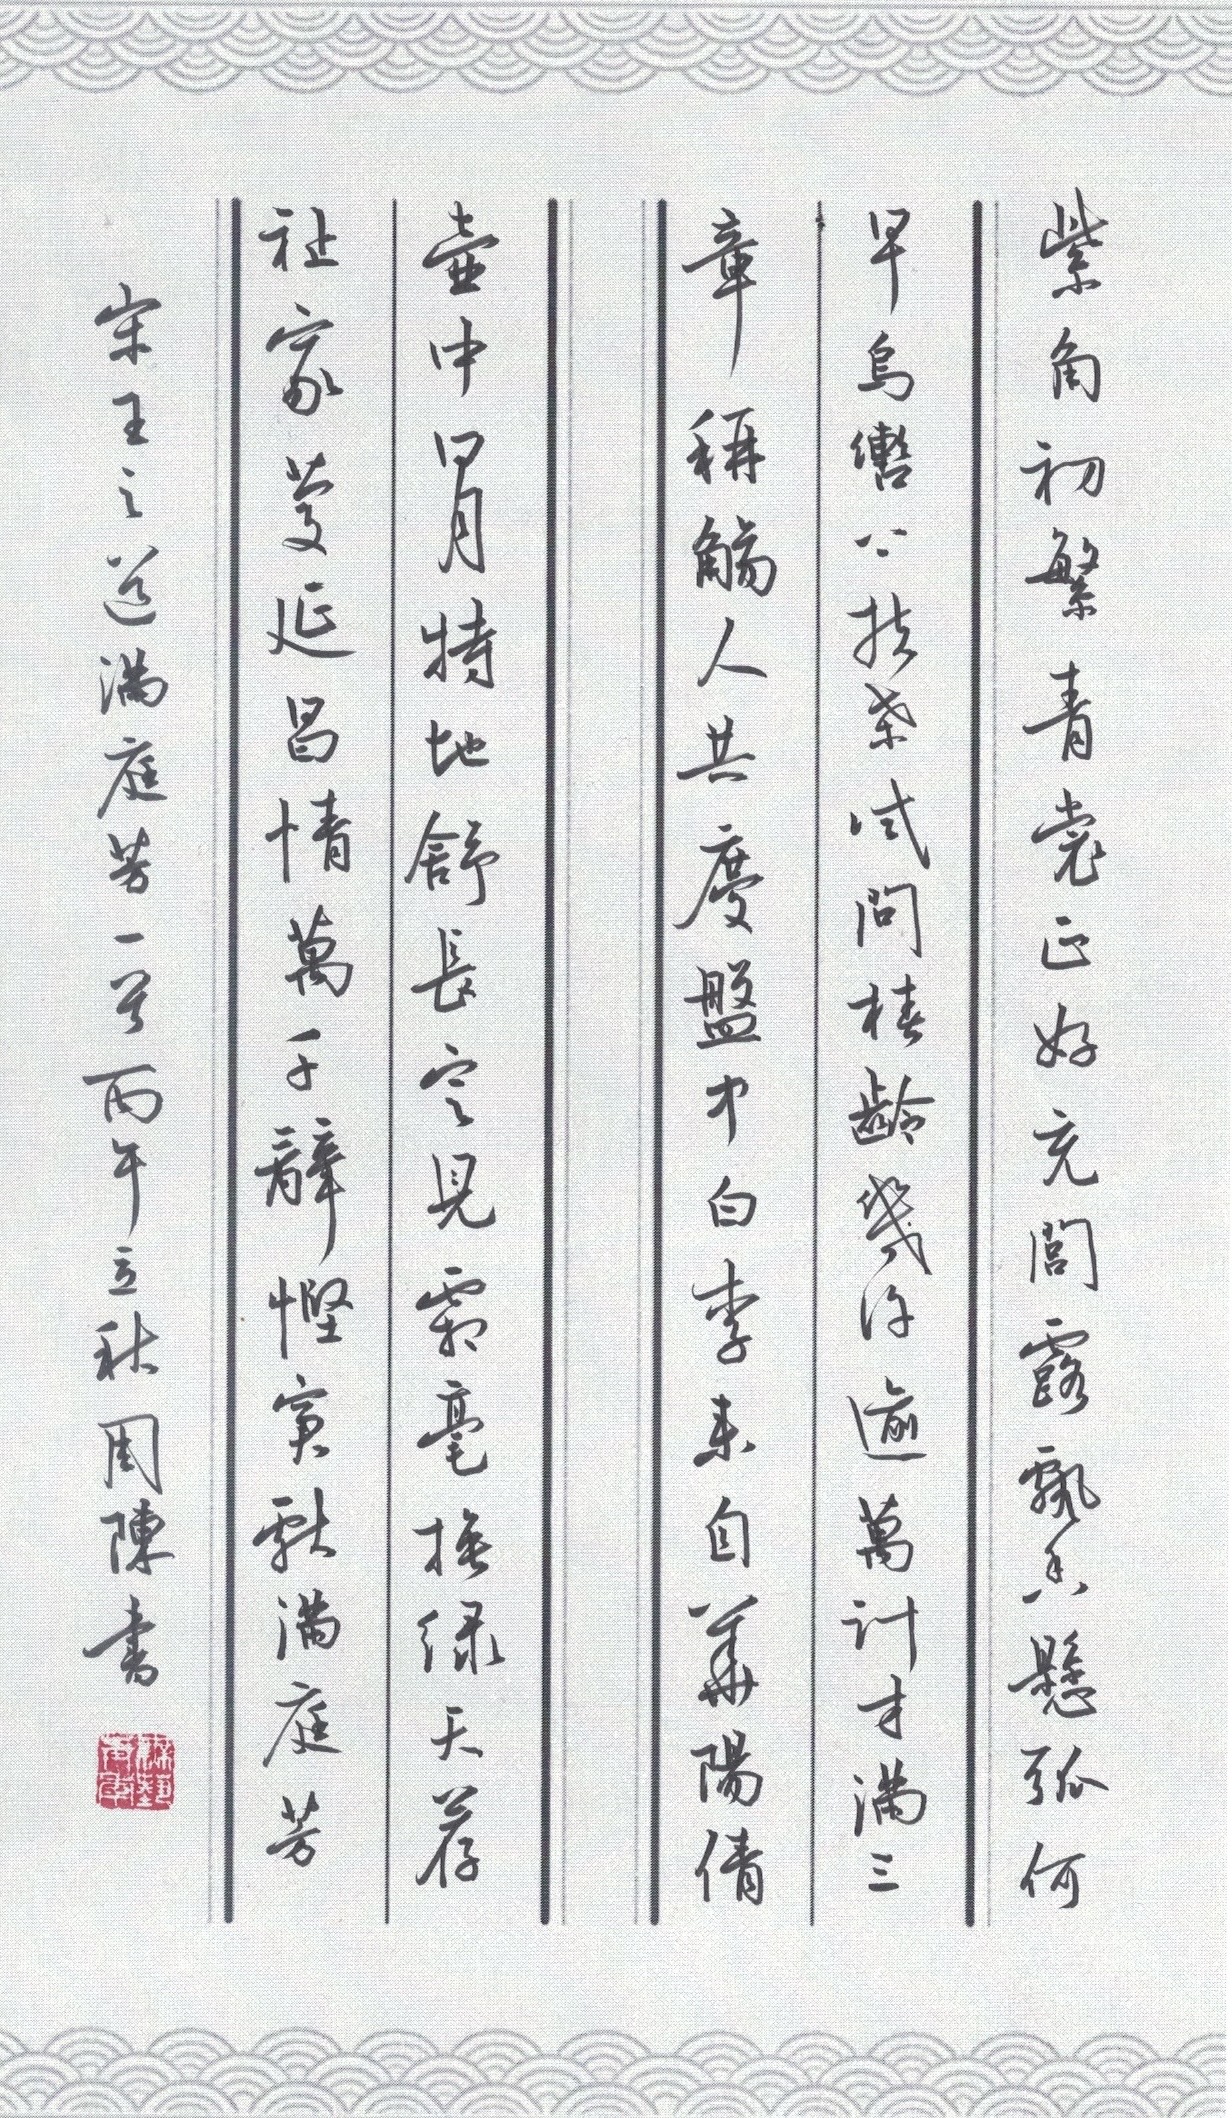 紫角初繁青裳正好充閭露飄香懸弧何
早烏轡扶桑試問椿齡幾許逾萬計才滿三
章稱觴人共慶盤中白李來自華陽倩
壺中日月特地舒長定見霜毫換绿天荐
祉家延昌情萬千辭慳寅獻滿庭芳
宋王之道滿庭芳一首丙午立秋周陳書